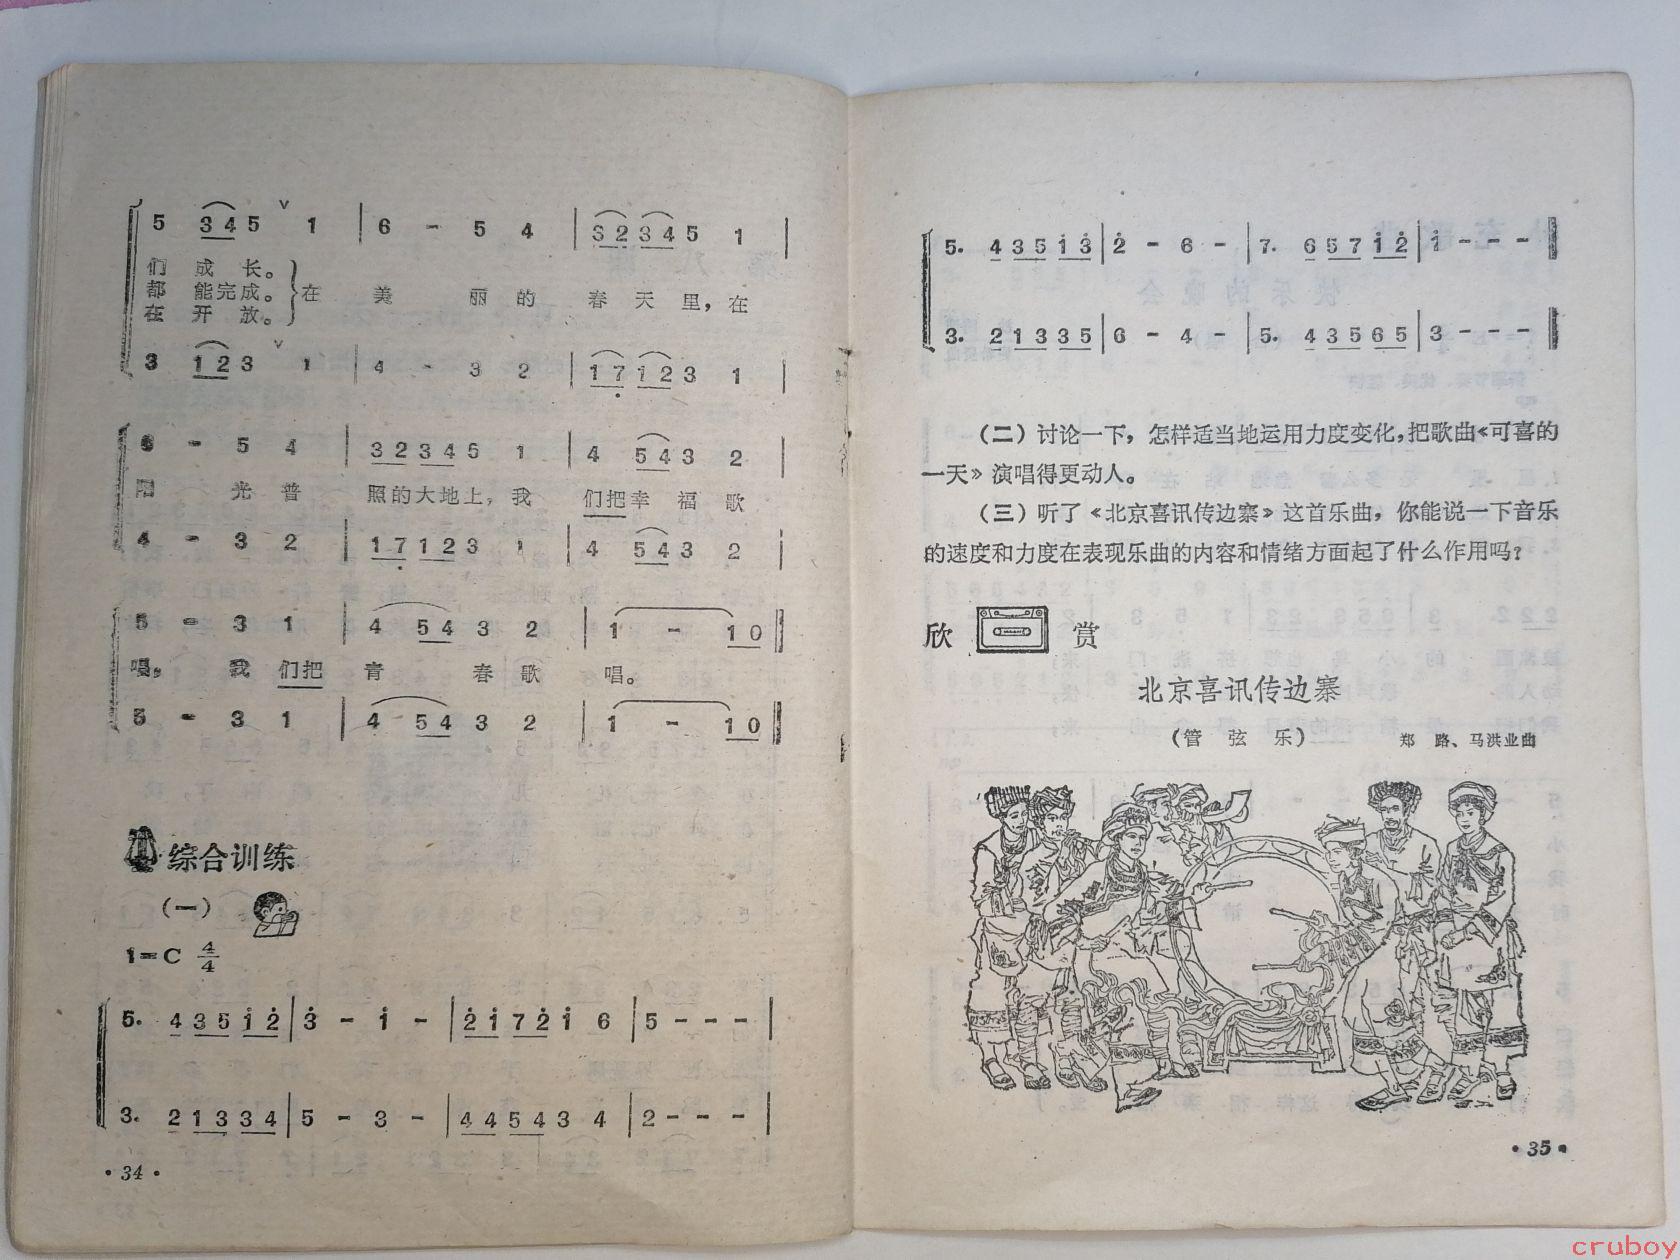 5 3 4 5 ∨ 1 | 6 - 5 4 | 3 2 3 4 5 1 |
们 成 长。
都 能完成。 在 美 丽 的 春 天 里，在
在 开 放。
3 1 2 3 ∨ 1 | 4 - 3 2 | 1 7̣ 1 2 3 1 |
6 - 5 4 | 3 2 3 4 5 1 | 4 5 4 3 2 |
阳 光 普 照的大地上，我 们把幸 福 歌
4 - 3 2 | 1 7̣ 1 2 3 1 | 4 5 4 3 2 |
5 - 3 1 | 4 5 4 3 2 | 1 - 1 0 ‖
唱。 我 们把 青 春 歌 唱。
5 - 3 1 | 4 5 4 3 2 | 1 - 1 0 ‖
综合训练
（一）
1=C 4/4
5. 4 3 5 i 2̇ | 3̇ - i - | 2̇ i 7 2̇ i 6 | 5 - - - |
3. 2 1 3 3 4 | 5 - 3 - | 4 4 5 4 3 4 | 2 - - - |
·34·
5. 4 3 5 i 3̇ | 2̇ - 6 - | 7. 6 5 7 i 2̇ | i - - - ‖
3. 2 1 3 3 5 | 6 - 4 - | 5. 4 3 5 6 5 | 3 - - - ‖
（二）讨论一下，怎样适当地运用力度变化，把歌曲《可喜的
一天》演唱得更动人。
（三）听了《北京喜讯传边寨》这首乐曲，你能说一下音乐
的速度和力度在表现乐曲的内容和情绪方面起了什么作用吗？
欣 赏
北京喜讯传边寨
（管 弦 乐） 郑 路、马洪业曲
·35·
cruboy